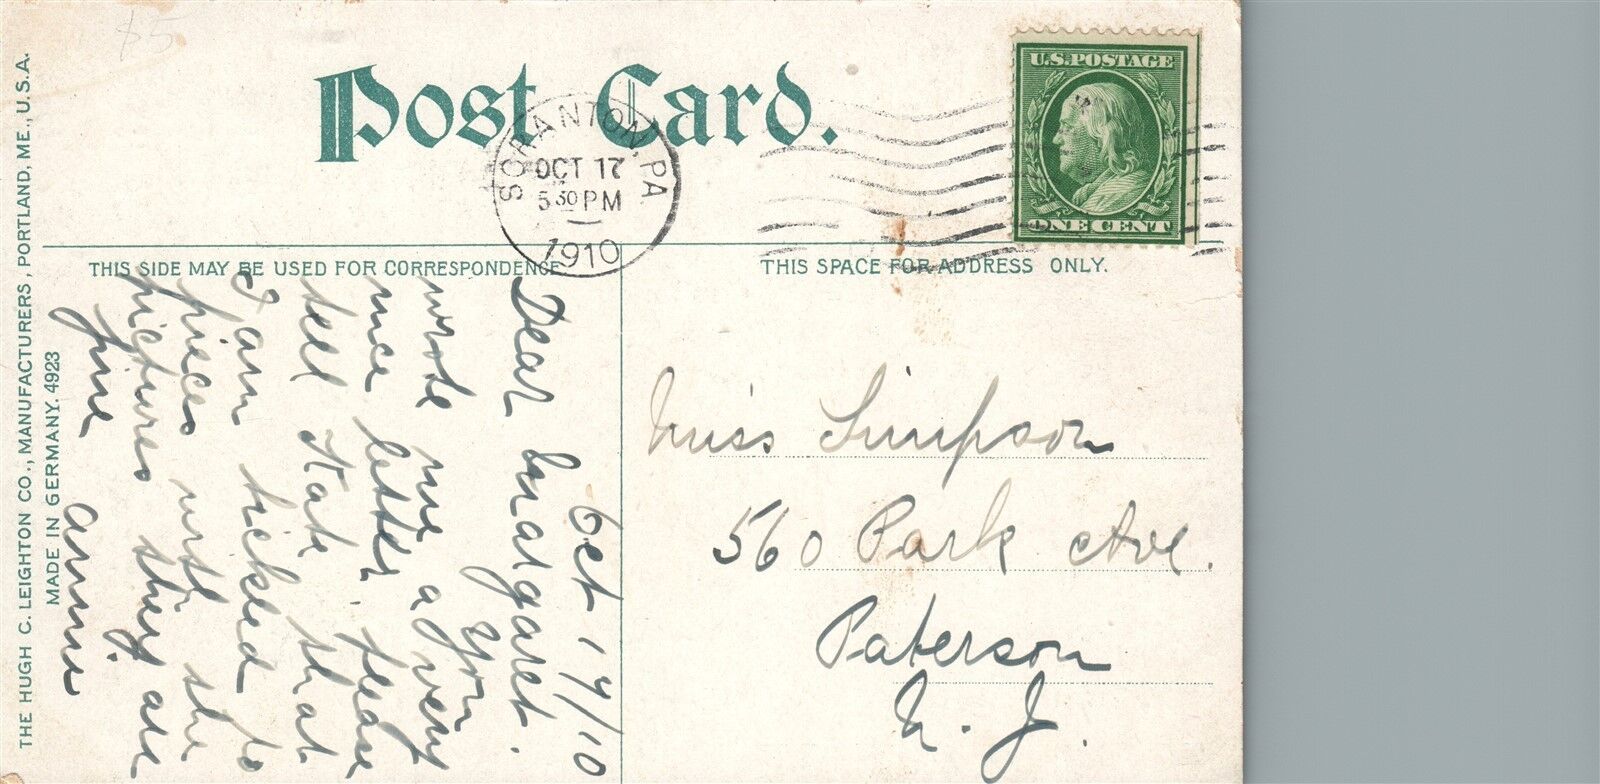 $5
Post Card.
SCRANTON, PA
OCT 17
5 30 PM
1910
U.S. POSTAGE
ONE CENT
THIS SIDE MAY BE USED FOR CORRESPONDENCE
THIS SPACE FOR ADDRESS ONLY.
THE HUGH C. LEIGHTON CO., MANUFACTURERS, PORTLAND, ME., U.S.A.
MADE IN GERMANY. 4923
Oct 17/10
Dear Margaret.
You
wrote me a very
nice letter. please
tell Kate that
I am tickled to
pieces with the
pictures they are
fine Annie
Miss Simpson
560 Park Ave.
Paterson
N. J.